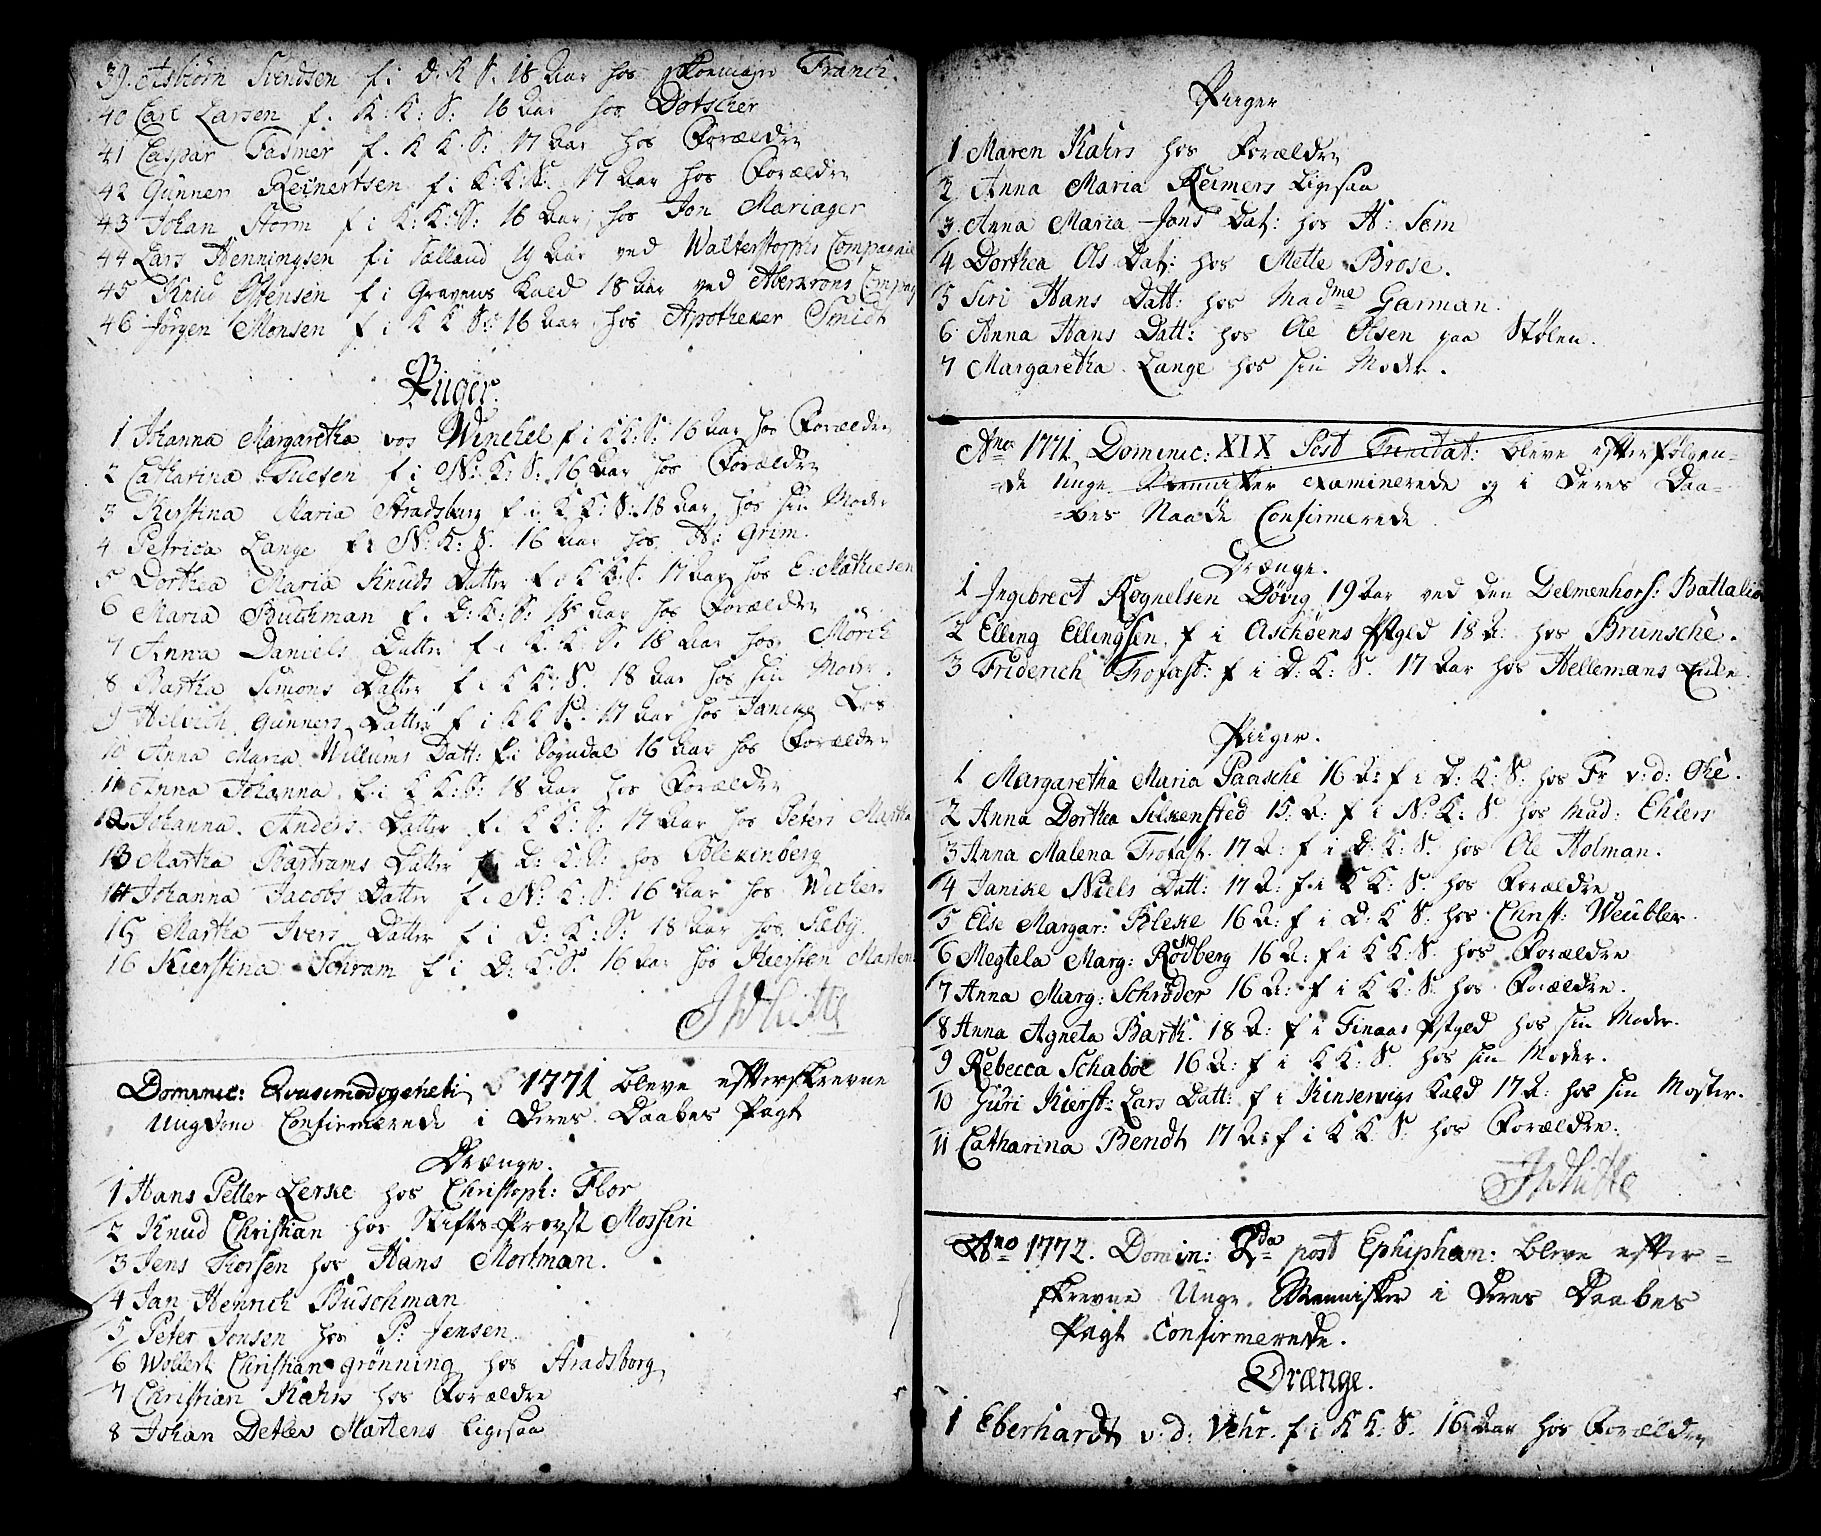 39. Asbiörn Svendsen f: i D: K S. 18 Aar hos Franck.
40 Carl Larsen f. K: K: S: 16 Aar hos Døtscher
41 Caspar Fasmer f. K K. S: 17 Aar hos Forældre
42 Gunner Reinertsen f i K: K: S. 17 Aar hos Forældre
43 Johan Storm f i K: K: S: 16 Aar hos Jon Mariager
44 Lars Henningsen f i Sælland 19 Aar ved Compagnie
45 Knud Østensen f i Gravens Kald 18 Aar ved
46 Jørgen Monsen f i K K S: 16 Aar hos Apotheker Smidt
Piiger.
1 Johanna Margaretha vos Winckel f i K K: S: 16 Aar hos Forældre
2 Catharina f i N: K: S. 16 Aar hos Forældre
3 Kirstina Maria Stradsburg f i K K: S. 18 Aar hos sin Moder
4 Petrica Lange f i N: K: S. 16 Aar hos H: Grim.
5 Dorthea Maria Knuds Datter f i K K: S. 17 Aar hos E: Mathiesen
6 Maria Buchman f. D: K: S: 18 Aar hos Forældre
7 Anna Daniels Datter f i K: K: S. 18 Aar hos Mörch
8 Bartha Simons Datter f i K K: S. 18 Aar hos sin Moder.
9 Helvich Gunners Datter f i K K S: 17 Aar hos
10 Anna Maria Willums Datt: f i Sogndal 16 Aar hos Forældre
11 Anna Johanna f i K K: S: 18 Aar hos Forældre
12 Johanna Anders Datter f i K K: S: 17 Aar hos Peters Martha
13 Martha Bartrams Datter f D: K: S: hos Blekinberg
14 Johanna Jacobs Datter f i N: K: S: 16 Aar hos Wichers
15 Martha Ivers Datter f i D: K: S: 18 Aar hos
16 Kierstina Schram f i D: K: S. 16 Aar hos Kiersten Martens
JWhitte
Dominic: Qvasimodogeniti 1771 bleve efterskrevne
Ungdom Confirmerede i deres Daabes Pagt
Drænge.
1 Hans Petter Lerke hos Christoph: Flor
2 Knud Christian hos Stifts-Provst Mossin
3 Jens Thorsen hos Hans Mortman.
4 Jan Henrich Buschman
5 Peter Jonsen hos P: Jensen
6 Wollert Christian grønning hos Stradsborg
7 Christian Kahrs hos Forældre
8 Johan Detlev Martens Ligesaa
Piiger
1 Maren Kahrs hos Forældre
2 Anna Maria Reimers Ligesaa
3 Anna Maria Jans Dat: hos H: Sem
4 Dorthea Ols Dat: hos Mette Brose.
5 Siri Hans Datt: hos Madme Garman.
6 Anna Hans Datt: hos Ole Olsen paa Stølen.
7 Margaretha Lange hos sin Moder.
Ano 1771 Dominic: XIX Post Trinitat: bleve efterfølgen-
-de Unge Mennisker examinerede og i Deres Daa-
-bes Naade Confirmerede
Drænge.
1 Ingebrect Rognelsen Døvig 19 Aar ved den Delmenhors: Battalion
2 Elling Ellingsen f i Aschøens Pstgld 18 A: hos Brunsche.
3 Friderich Trofast: f i D: K: S. 17 Aar hos Hellemans Enke.
Piiger.
1 Margaretha Maria Paasche 16 A: f i D: K: S: hos Fr v: d: Ohe.
2 Anna Dorthea Silkensted 15: A: f i N: K: S. hos Mad: Ehlers
3 Anna Malena Trofast. 17 A: f i D: K: S. hos Ole Holman.
4 Janike Niels Datt: 17 A: f i K K: S. hos Forældre
5 Else Margar: Bleke 16 A: f i D: K S. hos Christ: Weubler.
6 Megtela Marg: Rødberg 16 A: f i K K: S. hos Forældre
7 Anna Marg: Schrøder 16 A: f i K K: S. hos Forældre.
8 Anna Agneta Barth. 18 A: f i Finaas Pstgld hos sin Moder.
9 Rebecca Schabøe 16 A: f i K K: S. hos sin Moder.
10 Guri Kierst: Lars Datt: f i Kinservigs Kald 17 A: hos sin Moster.
11 Catharina Bendt 17 A: f i K K S: hos Forældre.
JWhitte
Ano 1772. Domin: 2da post Ephiphan: bleve efter-
skrevne Unge Mennisker i Deres Daabes
Pagt Confirmerede.
Drænge.
1 Eberhardt v: d: Vehr. f i K K: S. 16 Aar hos Forældre